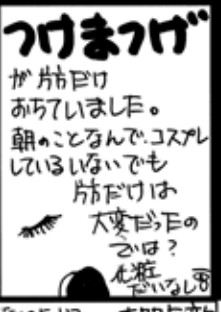 つけまつげ
が片方だけ
おちていました。
朝のことなんで、コスプレ
しているいないでも
片方だけは
大変だったの
では?
化粧
だいなし